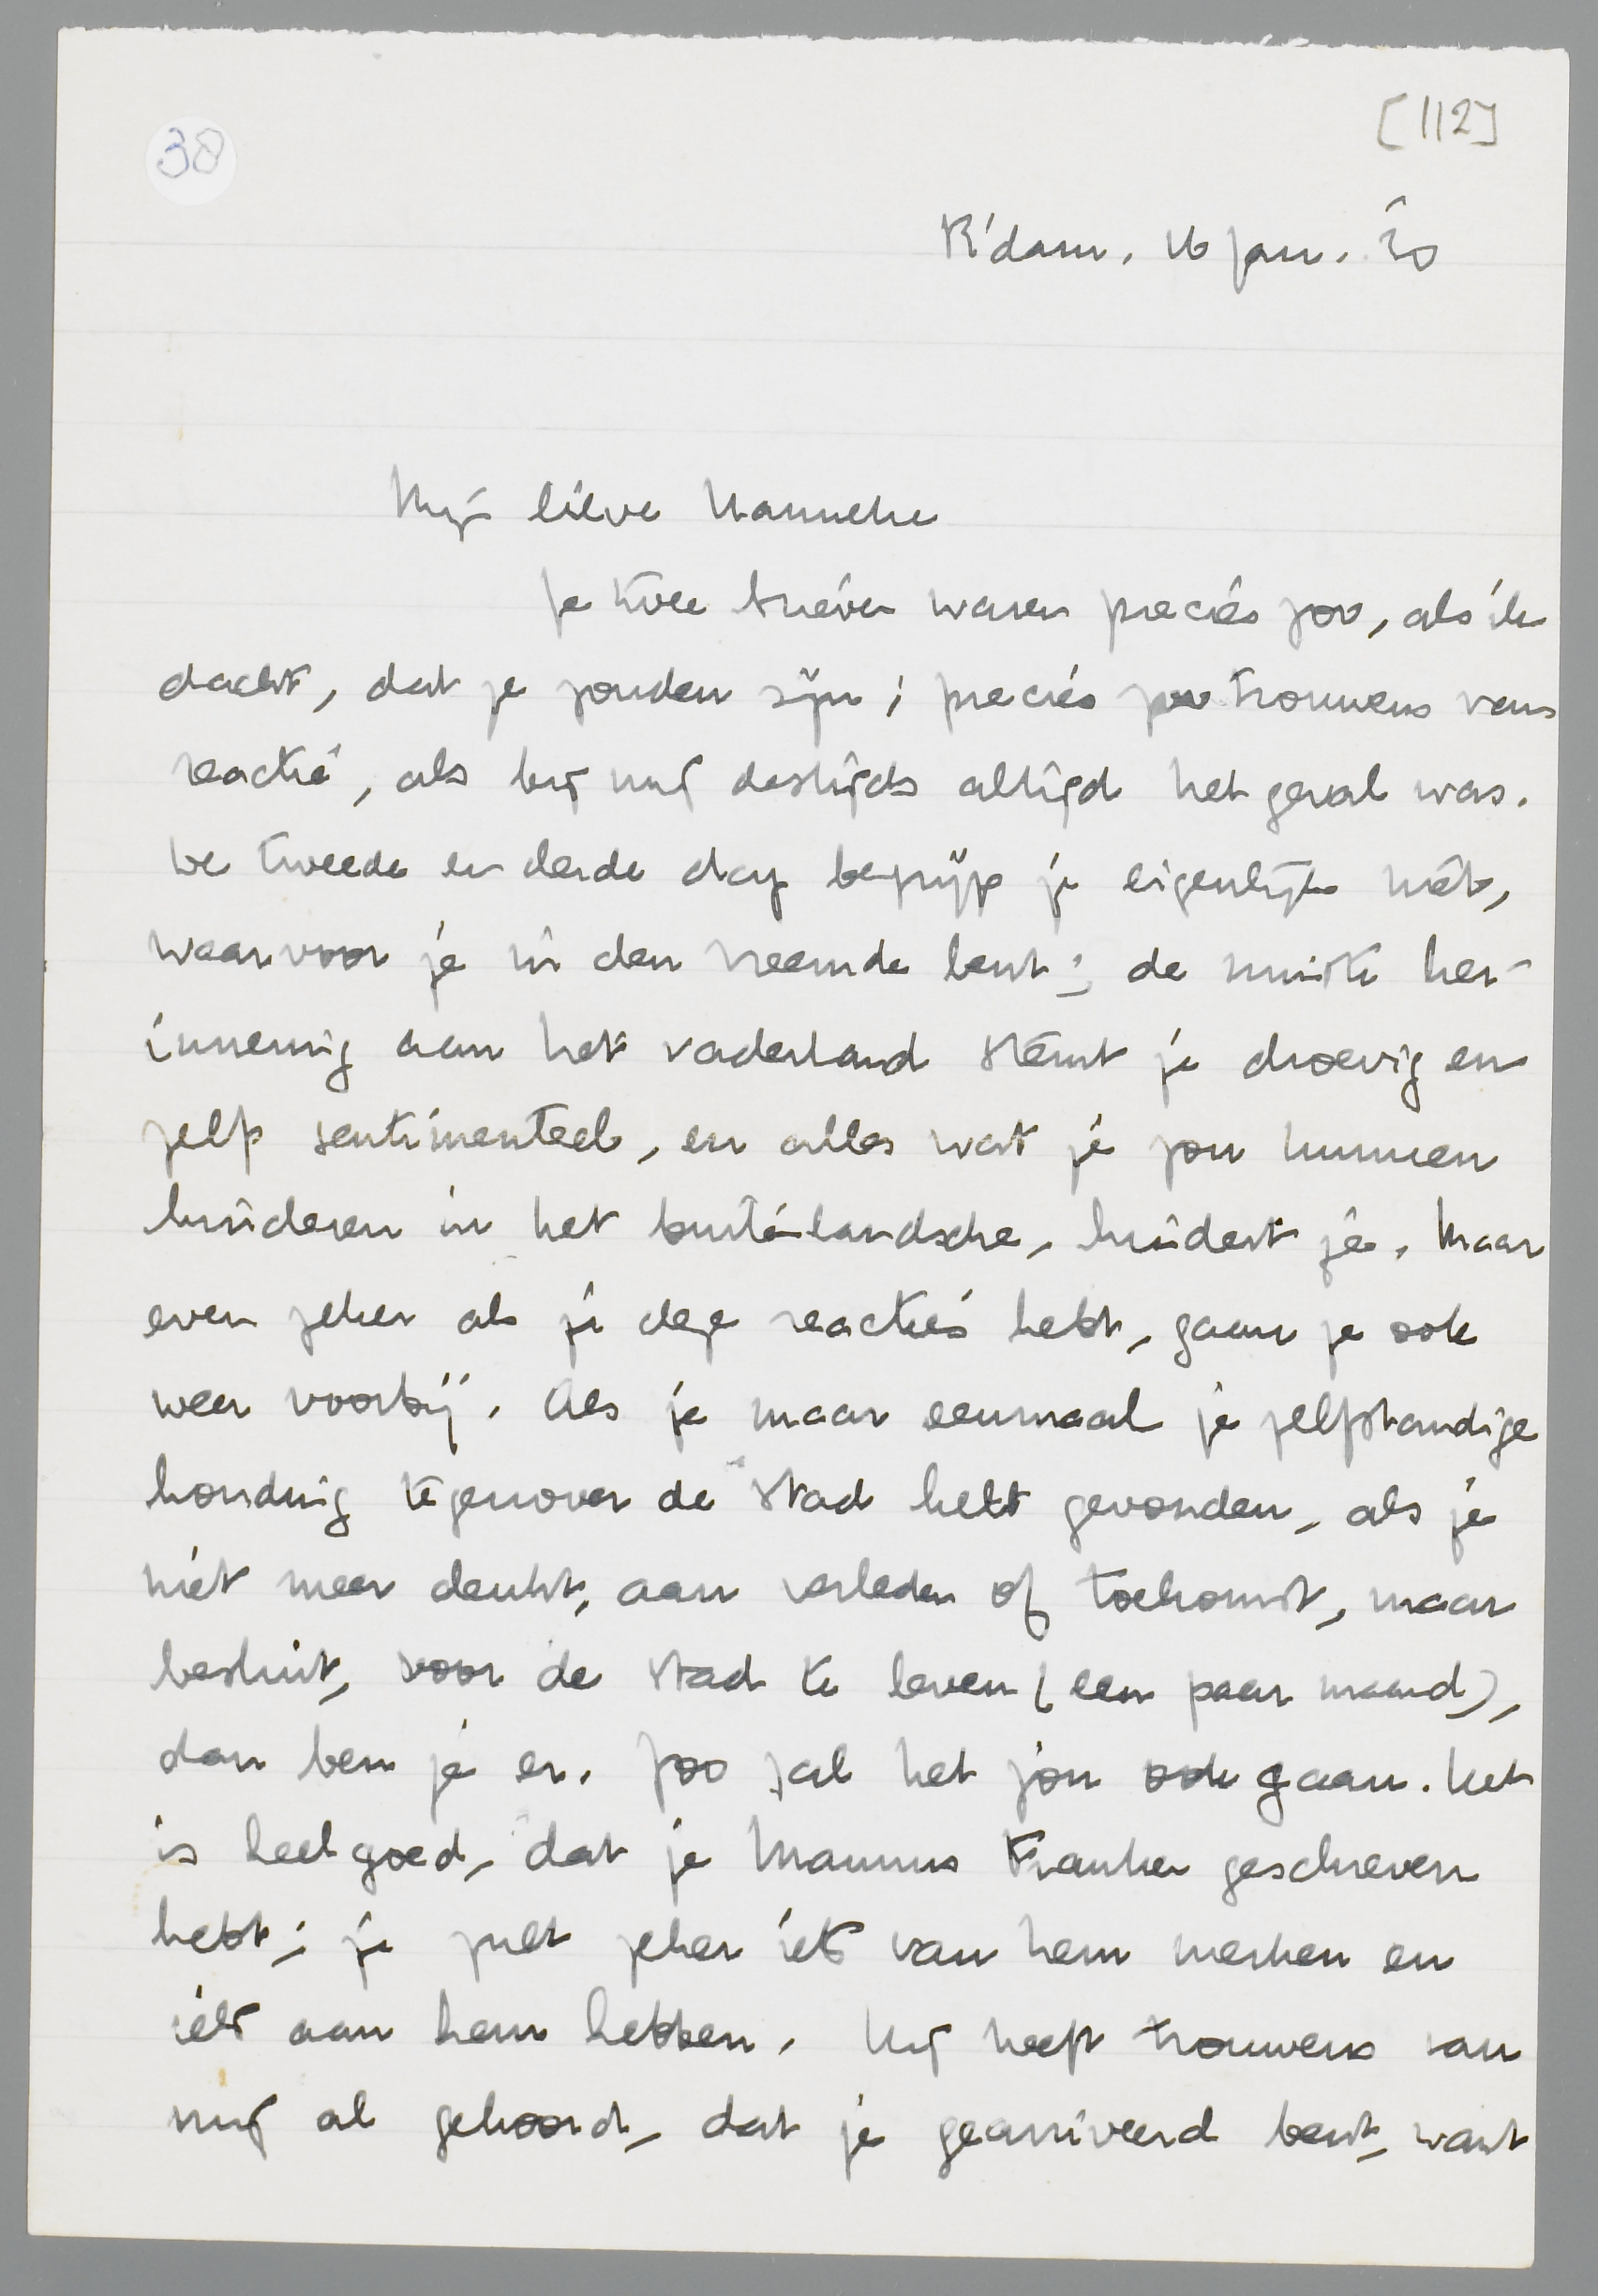 38
[112]
R'dam, 16 jan. '30
Mijn lieve Hanneke
Je twee brieven waren precies zoo, als ik
dacht, dat ze zouden zijn; precies zoo trouwens van
reactie, als bij mij destijds altijd het geval was.
De tweede en derde dag begrijp je eigenlijk niet,
waarvoor je in den vreemde bent; de minste her-
innering aan het vaderland stemt je droevig en
zelfs sentimenteel, en alles wat je zou kunnen
hinderen in het buitenlandsche, hindert je. Maar
even zeker als je deze reacties hebt, gaan ze ook
weer voorbij. Als je maar eenmaal je zelfstandige
houding tegenover de stad hebt gevonden, als je
niet meer denkt, aan verleden of toekomst, maar
besluit, voor de stad te leven (een paar maand),
dan ben je er. Zoo zal het jou ook gaan. Het
is heel goed, dat je Mannus Franken geschreven
hebt; je zult zeker iets van hem merken en
iets aan hem hebben. Hij heeft trouwens van
mij al gehoord, dat je gearriveerd bent, want